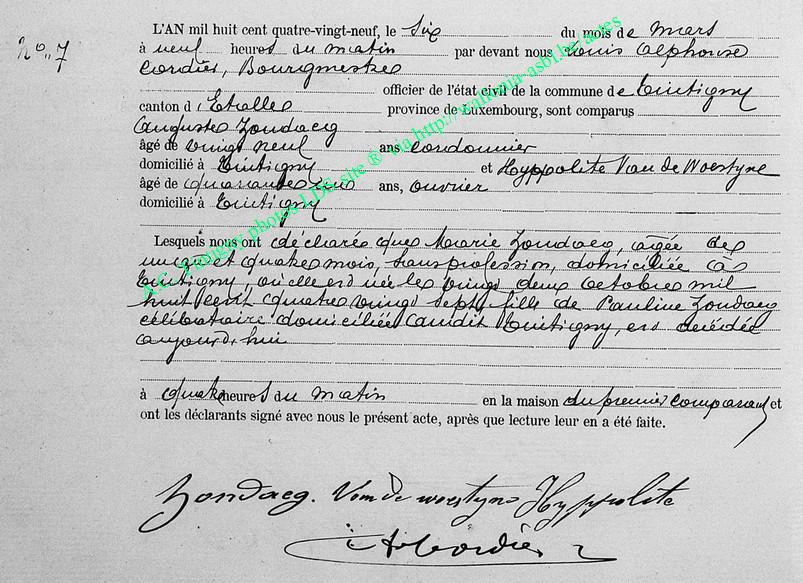 N° 7
L'AN mil huit cent quatre-vingt-neuf, le six du mois de mars
à neuf heures du matin par devant nous Louis Alphonse
Cordier, Bourgmestre
officier de l'état civil de la commune de Tintigny
canton d'Etalle province de Luxembourg, sont comparus
Auguste Zondacq
âgé de vingt neuf ans cordonnier
domicilié à Tintigny et Hyppolite Van de Woestyne
âgé de quarante ans, ouvrier
domicilié à Tintigny
Lesquels nous ont déclaré que Marie Zondacq, agée de
un an et quatre mois, sans profession, domiciliée à
Tintigny, où elle est née le vingt deux octobre mil
huit cent quatre vingt sept, fille de Pauline Zondacq
célibataire domiciliée audit Tintigny, est décédée
aujourd'hui
à quatre heures du matin en la maison du premier comparant et
ont les déclarants signé avec nous le présent acte, après que lecture leur en a été faite.
Zondacq. Van de woestyne Hyppolite
Cordier
photos LDS site ® via http://www.luxroots.be/actes